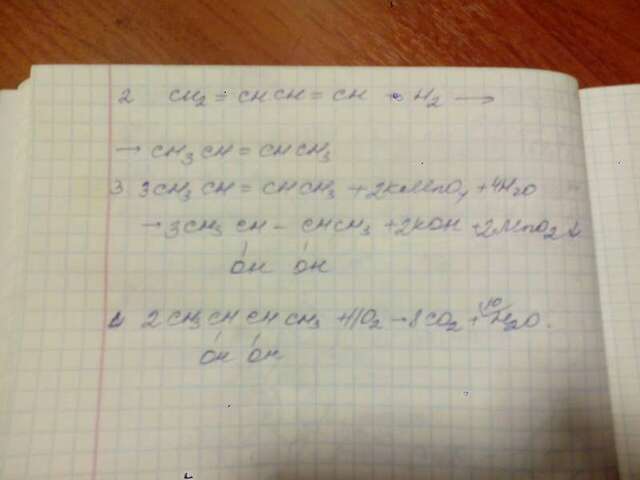 2 CH2 = CHCH = CH + H2 →
→ CH3CH = CHCH3
3 3CH3CH = CHCH3 + 2KMnO4 + 4H2O
→ 3CH3CH - CHCH3 + 2KOH + 2MnO2↓
OH OH
4 2CH3CHCHCH3 + 11O2 → 8CO2 + 10H2O.
OH OH